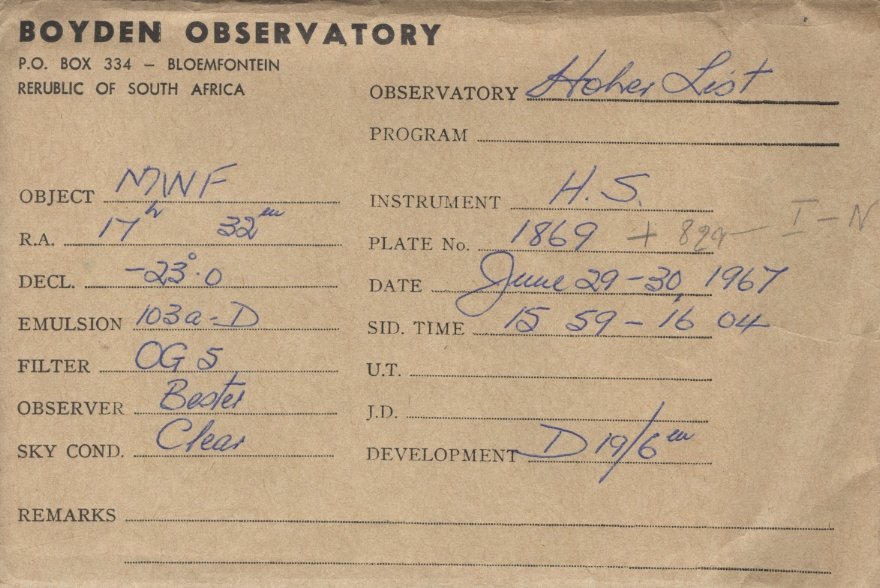 BOYDEN OBSERVATORY
P.O. BOX 334 – BLOEMFONTEIN
RERUBLIC OF SOUTH AFRICA
OBSERVATORY Hoher List
PROGRAM
OBJECT MWF
INSTRUMENT H.S.
R.A. 17h 32m
PLATE No. 1869 + 829 I-N
DECL. -23°.0
DATE June 29-30, 1967
EMULSION 103a-D
SID. TIME 15 59 - 16 04
FILTER OG 5
U.T.
OBSERVER Bester
J.D.
SKY COND. Clear
DEVELOPMENT D 19/6m
REMARKS